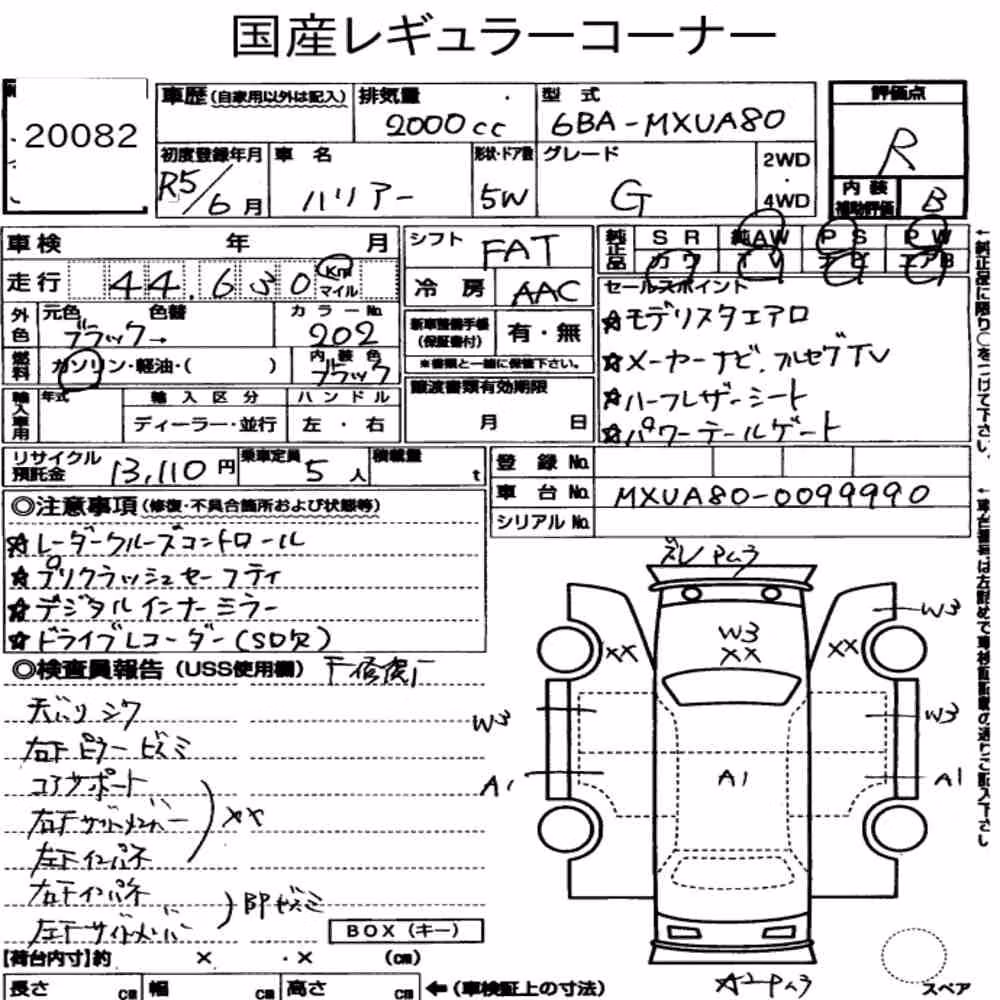 国産レギュラーコーナー
20082
車歴(自家用以外は記入) 排気量 型式 評価点
2000cc 6BA-MXUA80
R
初度登録年月 車名 形状・ドア数 グレード 2WD
・
R5/6月 ハリアー 5W G 4WD
内装補助評価 B
車検 年 月
シフト FAT
純正品 SR 純AW PS PW
カワ TV ナビ エアB
走行 44,630 Km マイル
冷房 AAC
外色 元色 色替 カラーNo.
ブラック→ 202
新車整備手帳(保証書付) 有・無
※書類と一緒に保管下さい。
燃料 ガソリン・軽油・( ) 内装色 ブラック
セールスポイント
☆モデリスタエアロ
☆メーカーナビ、フルセグTV
☆ハーフレザーシート
☆パワーテールゲート
譲渡書類有効期限
月 日
輸入車用 年式 輸入区分 ハンドル
ディーラー・並行 左・右
リサイクル預託金 13,110円 乗車定員 5人 積載量 t
登録No.
車台No. MXUA80-0099990
シリアルNo.
◎注意事項(修復・不具合箇所および状態等)
☆レーダークルーズコントロール
☆プリクラッシュセーフティ
☆デジタルインナーミラー
☆ドライブレコーダー(SD欠)
◎検査員報告(USS使用欄)
天バリ シワ
右F ピラー ヒズミ
コアサポート
右Fサイドメンバー
左Fインパネ
XX
右Fインパネ
左Fサイドメンバー
BPヒズミ
BOX(キー)
【荷台内寸】約 × ・× (cm)
長さ cm 幅 cm 高さ cm ←(車検証上の寸法)
ズレ Pム3
W3
W3
XX XX XX
W3 W3
A1 A1 A1
A2 Pム3
スペア
↑純正品に限り○をつけて下さい。
↑車台番号は左詰めで車検証記載の通りご記入下さい